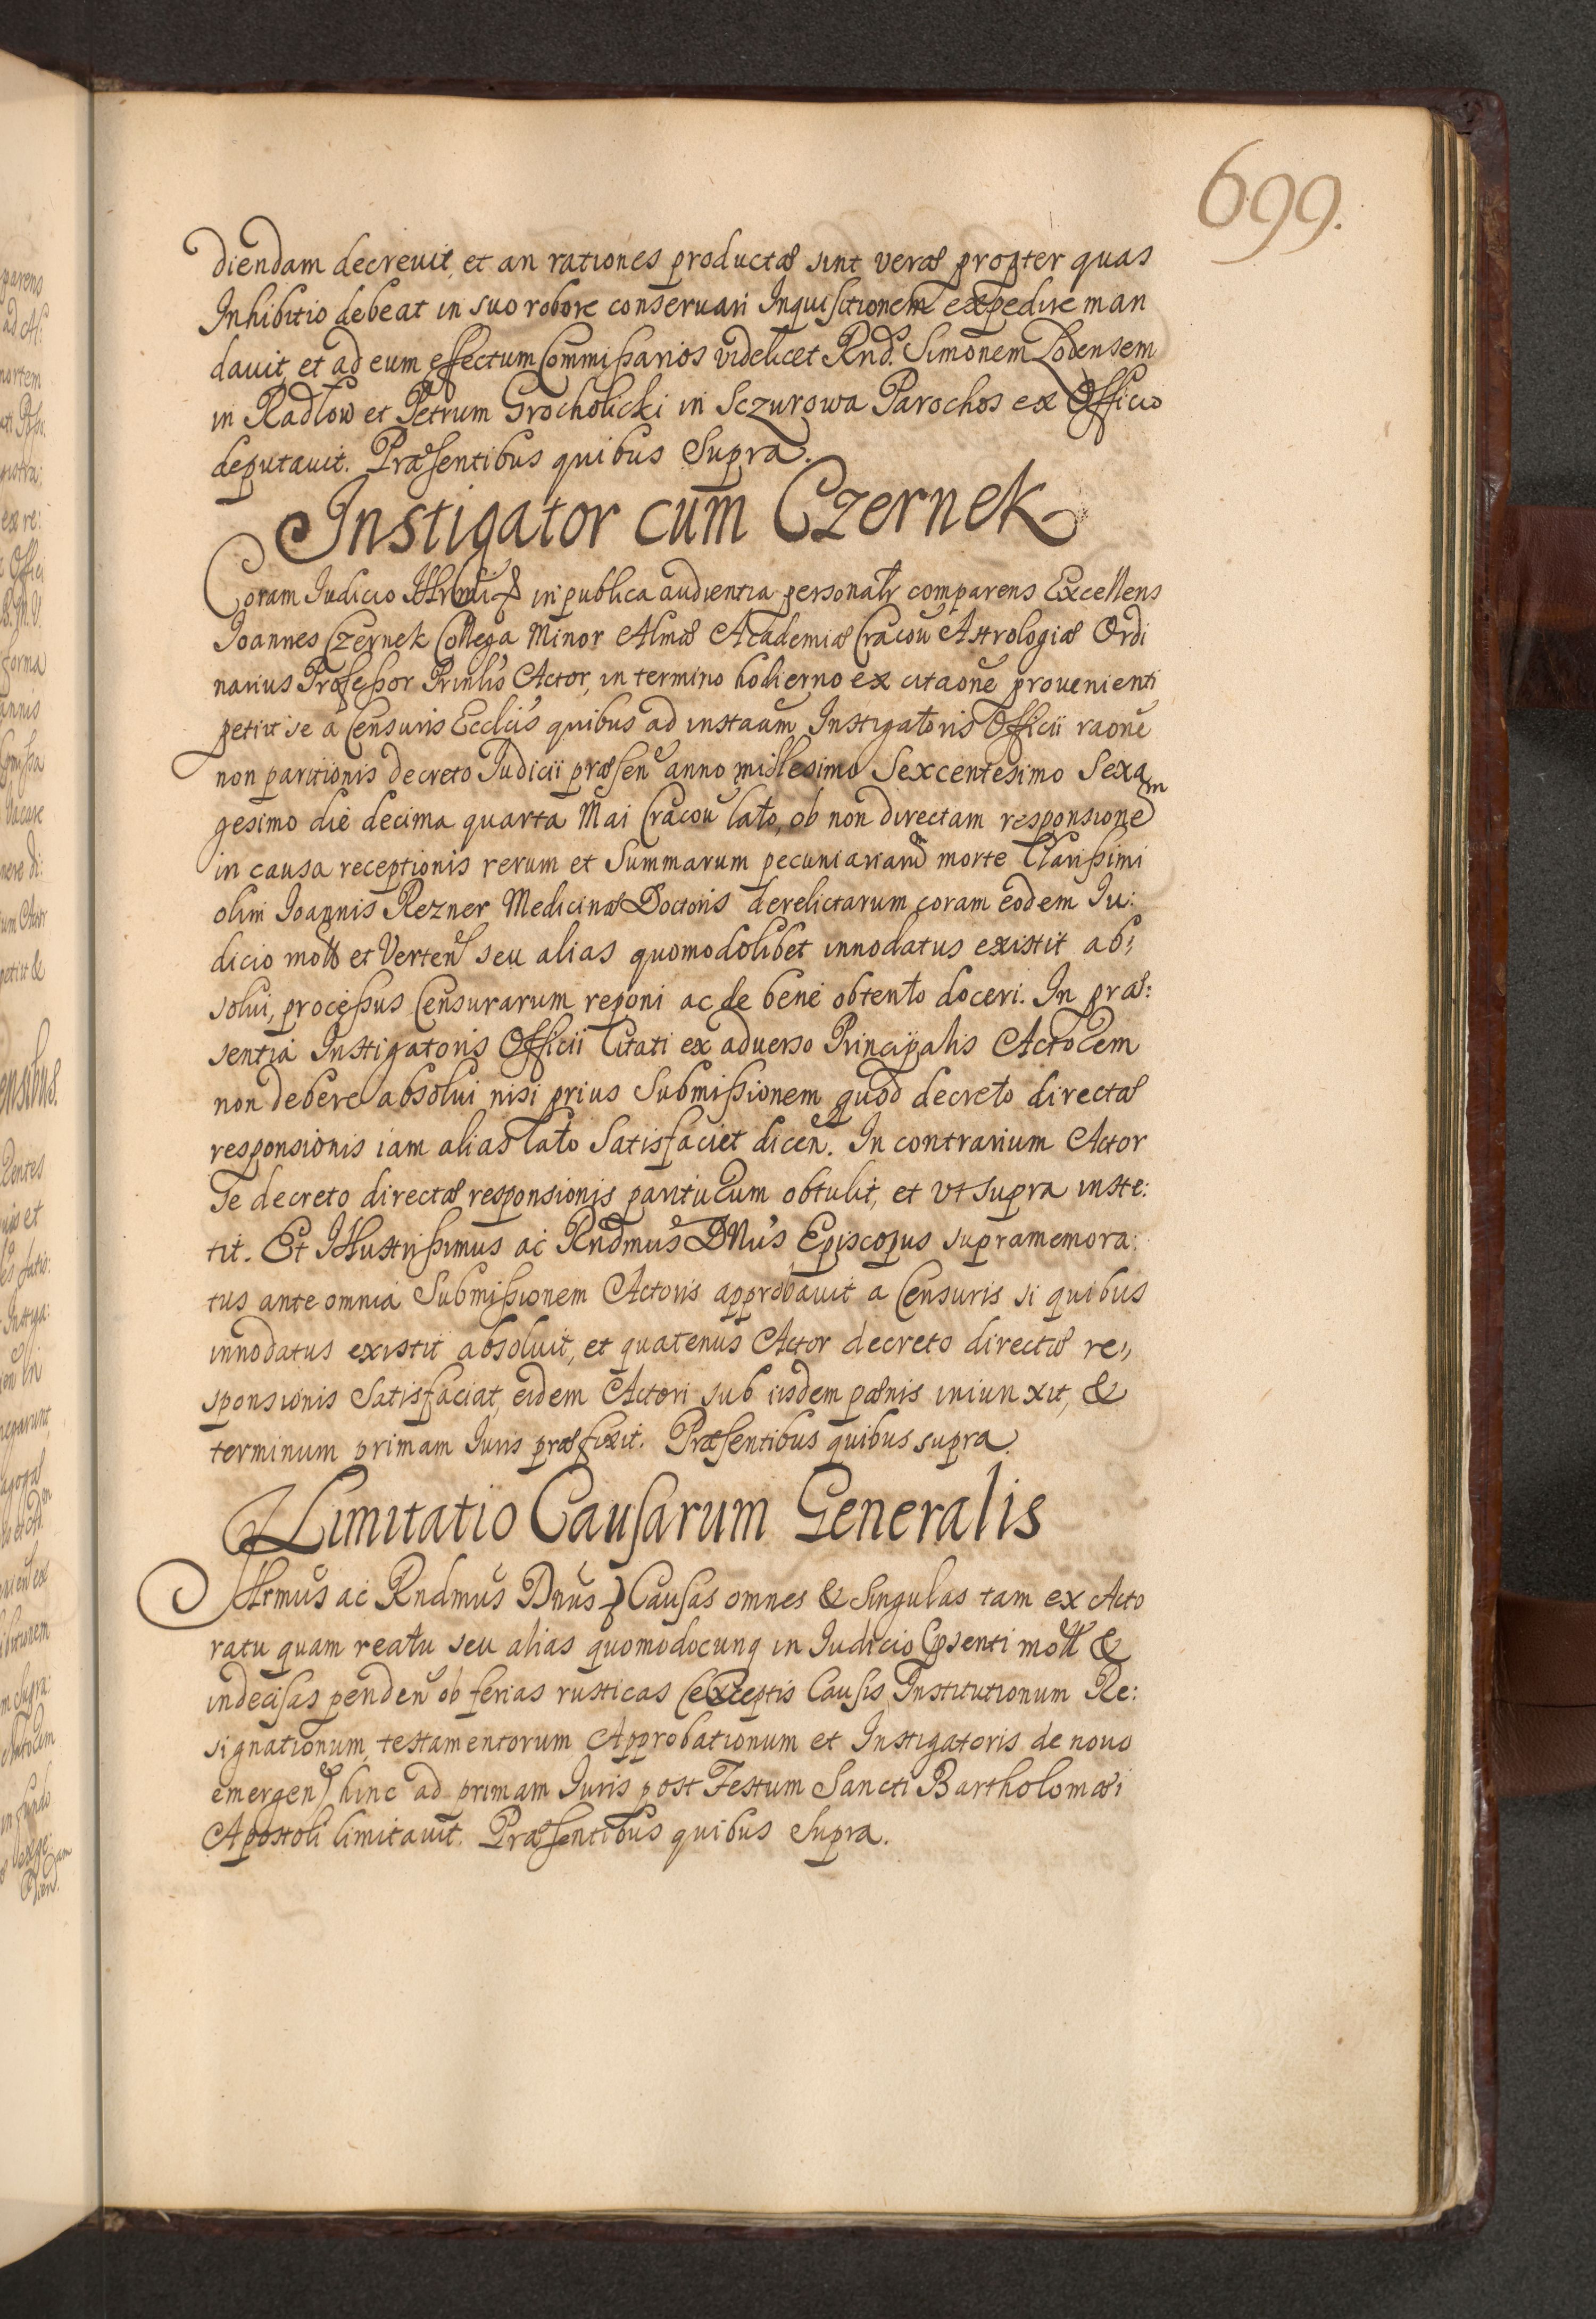 699.
diendam decreuit, et an rationes productæ sint veræ propter quas
Inhibitio debeat in suo robore conseruari Inquisitionem expedire man
dauit, et ad eum effectum Commissarios videlicet Rnd. Simonem Lodensem
in Radlow et Petrum Grocholicki in Sczurowa Parochos ex Officio
deputauit. Præsentibus quibus Supra.
Instigator cum Czernek
Coram Iudicio Illrmi & in publica audientia personalr comparens Excellens
Ioannes Czernek Collega Minor Almæ Academiæ Cracou Astrologiæ Ordi
narius Professor Prinlis Actor, in termino hodierno ex citaone prouenienti
petiit se a Censuris Ecclcis quibus ad instaum Instigatoris Officii raone
non paritionis decreto Iudicii præsen anno millesimo Sexcentesimo Sexa
gesimo die decima quarta Mai Cracou lato, ob non directam responsionem
in causa receptionis rerum et Summarum pecuniariarum morte Clarissimi
olim Ioannis Rezner Medicinæ Doctoris derelictarum coram eodem Iu:
dicio mott et Verten seu alias quomodolibet innodatus existit ab,
solui, processus Censurarum reponi ac de bene obtento doceri. In præ:
sentia Instigatoris Officii Citati ex aduerso Principalis Actorem
non debere absolui nisi prius Submissionem quod decreto directæ
responsionis iam alias lato Satisfaciet dicen. In contrarium Actor
Se decreto directæ responsionis pariturum obtulit, et vt supra inste:
tit. Et Illustrissimus ac Rndmus DNus Episcopus supramemora:
tus ante omnia Submissionem Actoris approbauit a Censuris si quibus
innodatus existit absoluit, et quatenus Actor decreto directæ re,,
sponsionis Satisfaciat, eidem Actori sub iisdem pænis iniunxit, &
terminum primam Iuris præfixit. Præsentibus quibus supra.
Limitatio Causarum Generalis
Illrmus ac Rndmus Dnus & Causas omnes & Singulas tam ex Acto
ratu quam reatu seu alias quomodocunq in Iudicio psenti mott &
indecisas penden ob ferias rusticas (exceptis Causis Institutionum Re:
signationum, testamentorum Approbationum et Instigatoris de nouo
emergen) hinc ad primam Iuris post Festum Sancti Bartholomæi
Apostoli limitauit. Præsentibus quibus Supra.